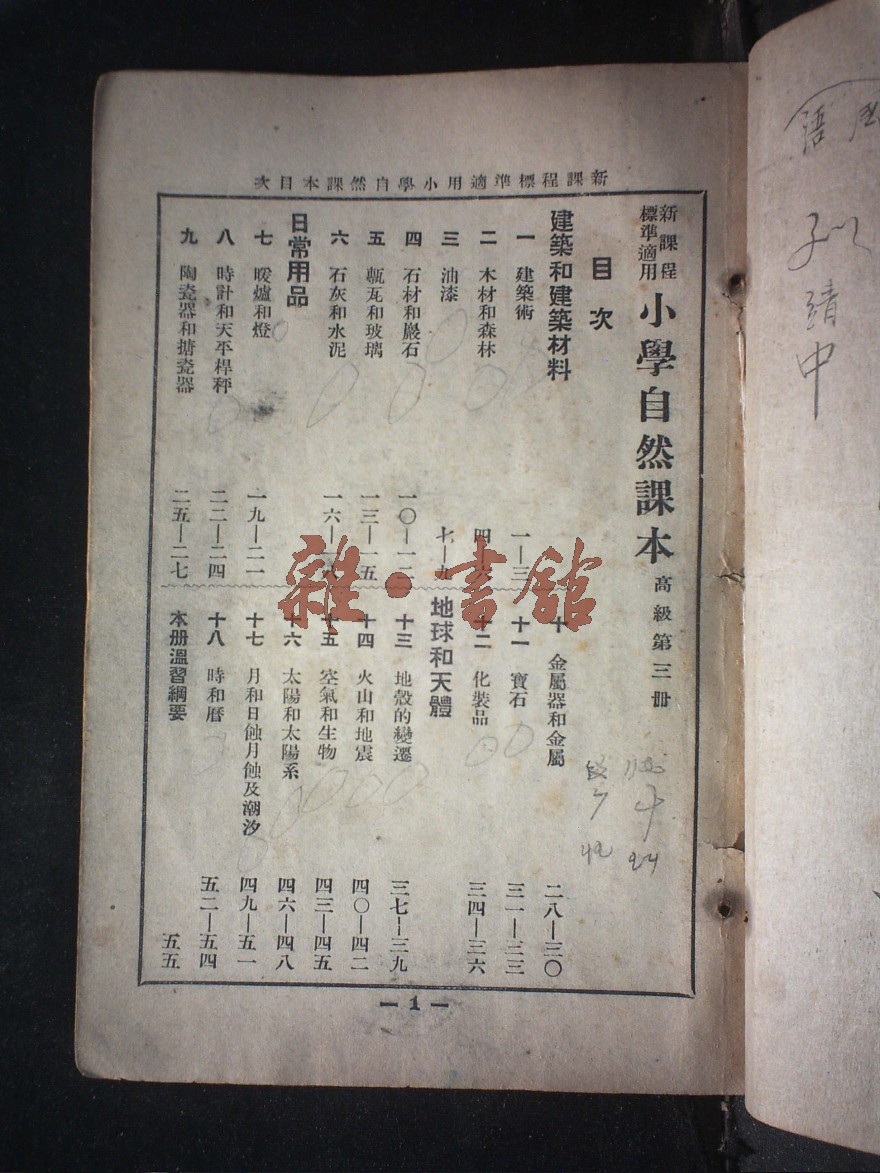 新課程標準適用小學自然課本目次
新課程標準適用 小學自然課本 高級第三册
目次
建築和建築材料
一 建築術 一—三
二 木材和森林 四—六
三 油漆 七—九
四 石材和巖石 一〇—一二
五 甎瓦和玻璃 一三—一五
六 石灰和水泥 一六—一八
日常用品
七 暖爐和燈 一九—二一
八 時計和天平桿秤 二二—二四
九 陶瓷器和搪瓷器 二五—二七
十 金屬器和金屬 二八—三〇
十一 寶石 三一—三三
十二 化裝品 三四—三六
地球和天體
十三 地殼的變遷 三七—三九
十四 火山和地震 四〇—四二
十五 空氣和生物 四三—四五
十六 太陽和太陽系 四六—四八
十七 月和日蝕月蝕及潮汐 四九—五一
十八 時和曆 五二—五四
本册溫習綱要 五五
— 1 —
雜·書館